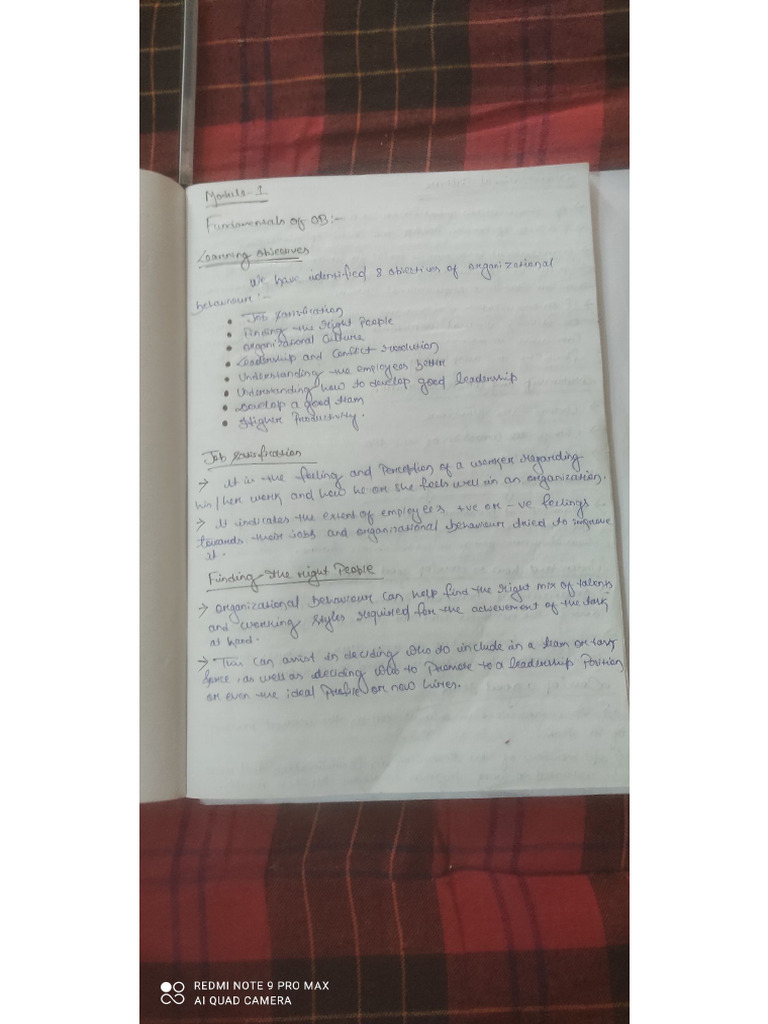 Module-1
Fundamentals of OB:-
Learning objectives
We have identified 8 objectives of organizational
behaviour:-
• Job satisfication
• Finding the right People
• organizational Culture
• Leadership and Conflict resolution
• Understanding the employees better
• Understanding how to develop good leadership
• Develop a good team
• Higher Productivity.
Job satisfication
→ It is the feeling and Perception of a worker regarding
his/her work, and how he or she feels well in an organization.
→ It indicates the extent of employees +ve or -ve feelings
towards their jobs and organizational behaviour tried to improve
it.
Finding the right People
→ organizational behaviour can help find the right mix of talents
and working styles required for the achievement of the task
at hand.
→ This can assist in deciding who to include in a team or task
force, as well as deciding who to Promote to a leadership Position
or even the ideal Profile or new hires.
REDMI NOTE 9 PRO MAX
AI QUAD CAMERA